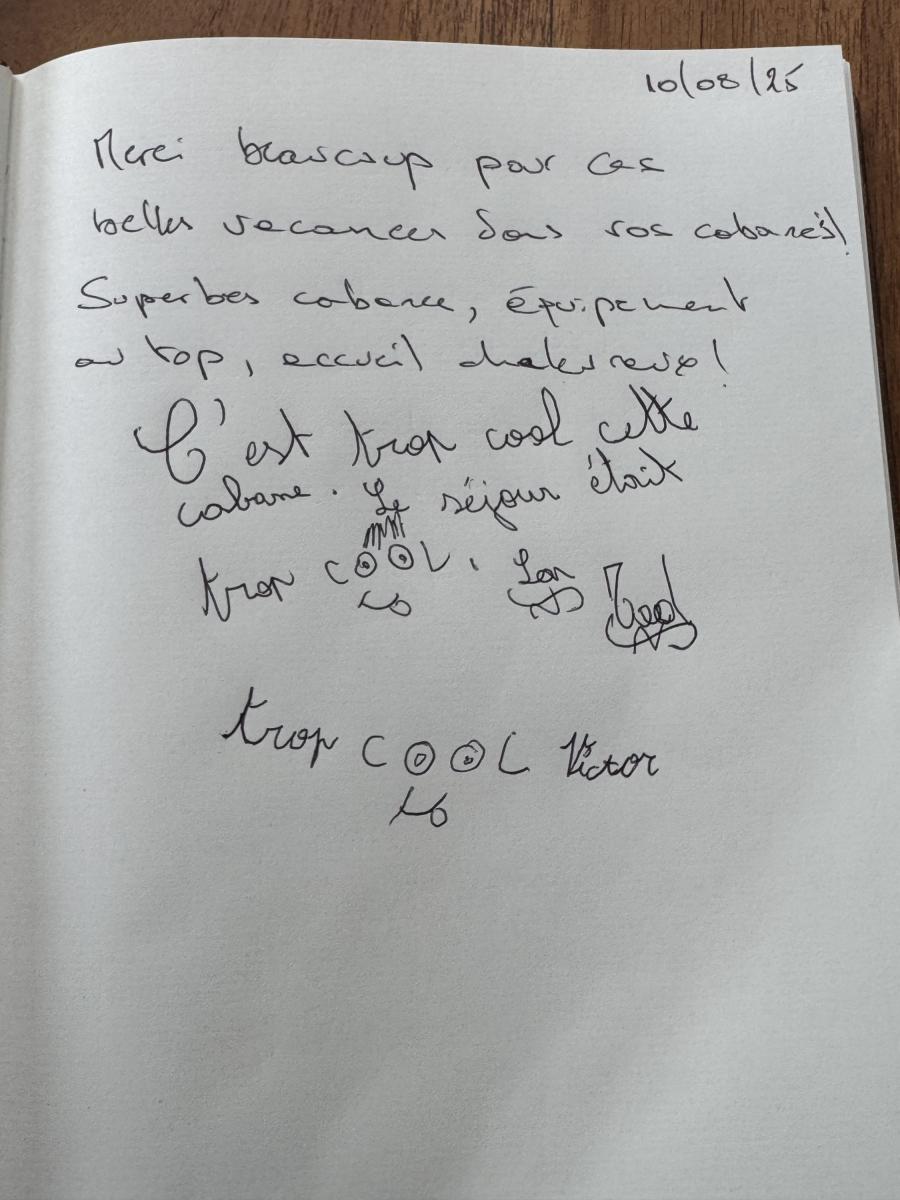 10/08/25
Merci beaucoup pour ces
belles vacances dans vos cabanes!
Superbes cabane, équipement
au top, accueil chaleureux!
C'est trop cool cette
cabane. Le séjour était
trop COOL.
trop COOL Victor